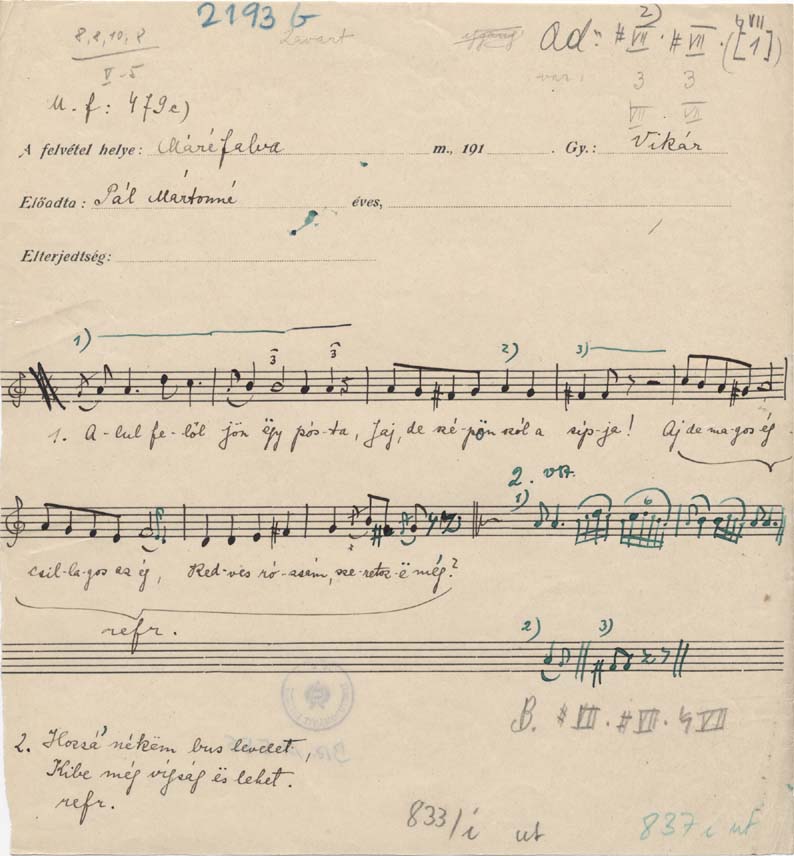 2193 b
8, 8, 10, 8
V-5
Zavart
ad: # VII 2) . # VII . ([1]) ♮VII
var: 3 3
VII . VI
M. f: 479c)
A felvétel helye: Máréfalva m., 191 . Gy.: Vikár
Előadta: Pál Mártonné éves,
Elterjedtség:
1) 3 3 2) 3)
1. A-lul fe-lől jön ëgy pós-ta, Jaj, de szé-pön szól a sip-ja! Aj de ma-gos ég
2. vsz.
1) 6
csil-la-gos az ég, Ked-ves ró-zsám, sze-retsz-ë még?
refr.
2) 3)
B. # VII . # VII . ♮ VII
2. Hozzá' nékëm bus levelet,
Kibe még vígság ës lehet.
refr.
833/i ut 837 i ut